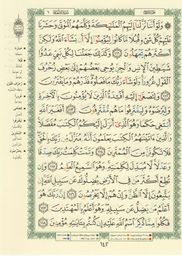 وَلَوْ أَنَّنَا نَزَّلْنَا إِلَيْهِمُ الْمَلَٰئِكَةَ وَكَلَّمَهُمُ الْمَوْتَىٰ وَحَشَرْنَا
عَلَيْهِمْ كُلَّ شَيْءٍ قُبُلًا مَّا كَانُوا لِيُؤْمِنُوا إِلَّا أَن يَشَاءَ اللَّهُ وَلَٰكِنَّ
أَكْثَرَهُمْ يَجْهَلُونَ ١١١ وَكَذَٰلِكَ جَعَلْنَا لِكُلِّ نَبِيٍّ عَدُوًّا
شَيَاطِينَ الْإِنسِ وَالْجِنِّ يُوحِي بَعْضُهُمْ إِلَىٰ بَعْضٍ زُخْرُفَ
الْقَوْلِ غُرُورًا وَلَوْ شَاءَ رَبُّكَ مَا فَعَلُوهُ فَذَرْهُمْ وَمَا يَفْتَرُونَ ١١٢
وَلِتَصْغَىٰ إِلَيْهِ أَفْئِدَةُ الَّذِينَ لَا يُؤْمِنُونَ بِالْآخِرَةِ
وَلِيَرْضَوْهُ وَلِيَقْتَرِفُوا مَا هُم مُّقْتَرِفُونَ ١١٣ أَفَغَيْرَ اللَّهِ
أَبْتَغِي حَكَمًا وَهُوَ الَّذِي أَنزَلَ إِلَيْكُمُ الْكِتَابَ مُفَصَّلًا
وَالَّذِينَ آتَيْنَاهُمُ الْكِتَابَ يَعْلَمُونَ أَنَّهُ مُنَزَّلٌ مِّن رَّبِّكَ
بِالْحَقِّ فَلَا تَكُونَنَّ مِنَ الْمُمْتَرِينَ ١١٤ وَتَمَّتْ كَلِمَتُ رَبِّكَ صِدْقًا
وَعَدْلًا لَّا مُبَدِّلَ لِكَلِمَاتِهِ وَهُوَ السَّمِيعُ الْعَلِيمُ ١١٥ وَإِن
تُطِعْ أَكْثَرَ مَن فِي الْأَرْضِ يُضِلُّوكَ عَن سَبِيلِ اللَّهِ إِن
يَتَّبِعُونَ إِلَّا الظَّنَّ وَإِنْ هُمْ إِلَّا يَخْرُصُونَ ١١٦ إِنَّ رَبَّكَ هُوَ
أَعْلَمُ مَن يَضِلُّ عَن سَبِيلِهِ وَهُوَ أَعْلَمُ بِالْمُهْتَدِينَ ١١٧
فَكُلُوا مِمَّا ذُكِرَ اسْمُ اللَّهِ عَلَيْهِ إِن كُنتُم بِآيَاتِهِ مُؤْمِنِينَ ١١٨
١٤٢